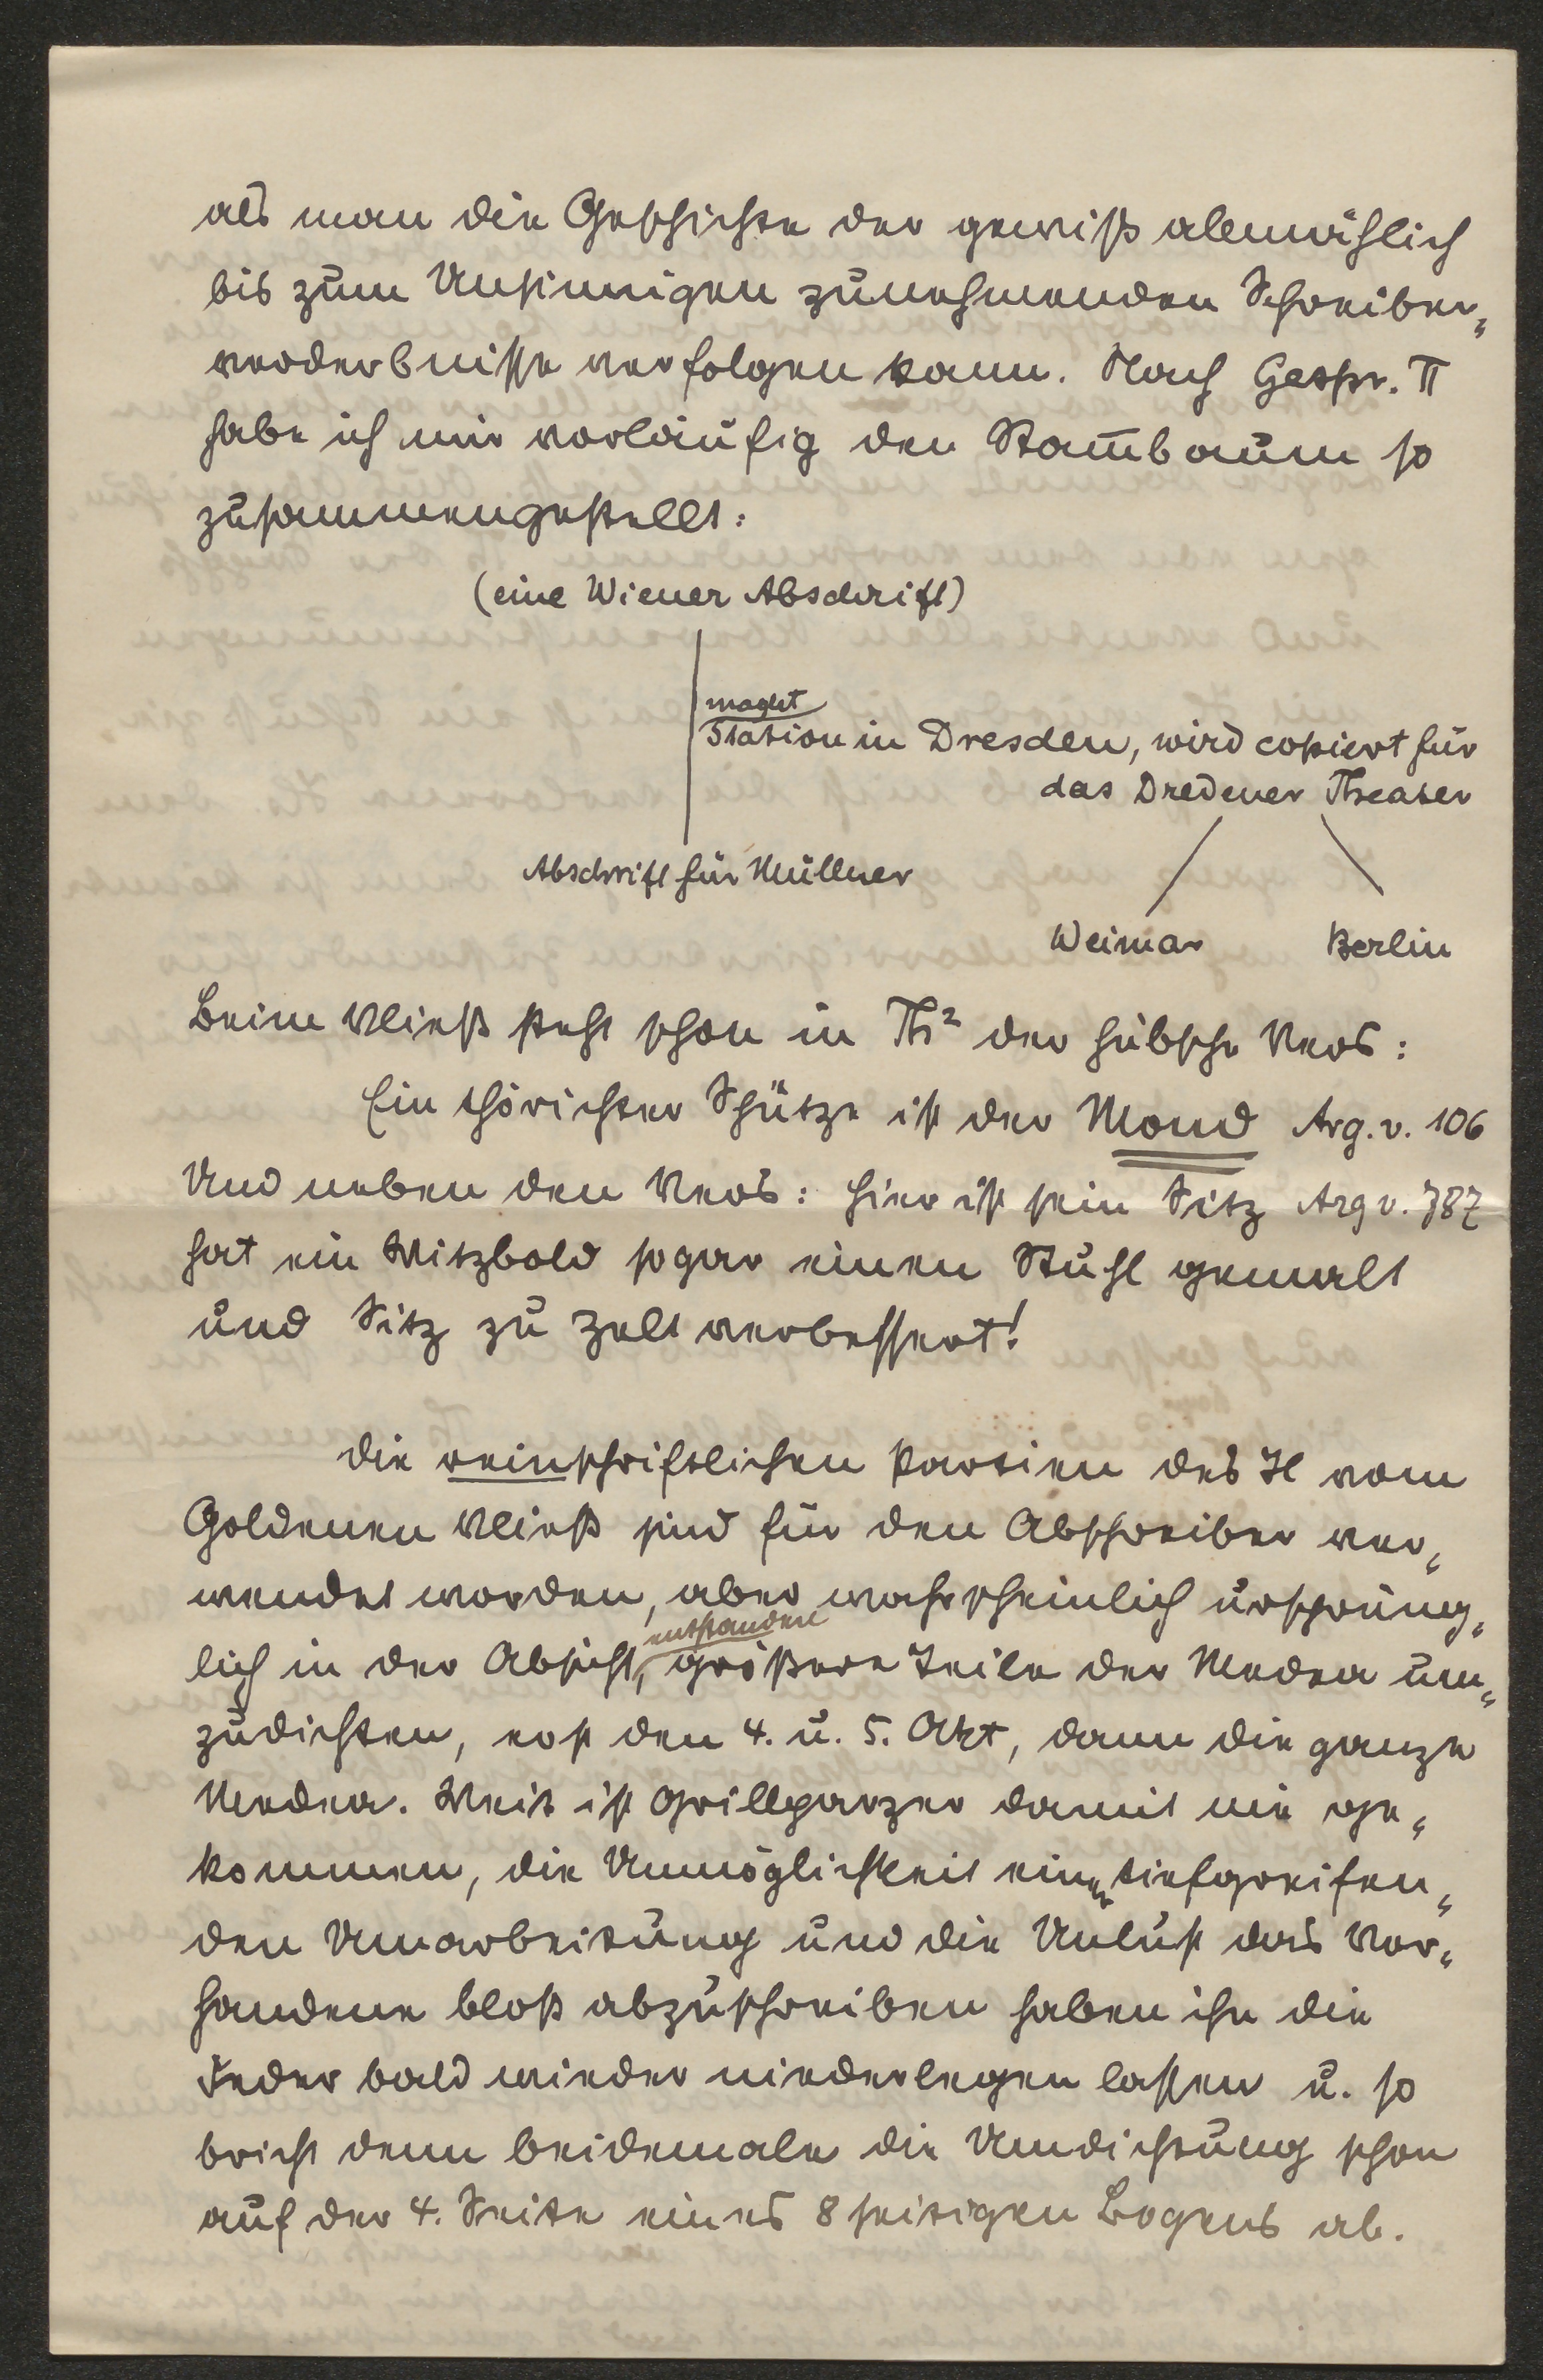 als man die Geschichte der gewiß allmählich
bis zum Unsinnigen zunehmenden Schreiber„
verderbnisse verfolgen kann. Nach Gespr. II
habe ich mir vorläufig den Stam̅baum so
zusammengestellt:
(eine Wiener Abschrift)
macht
Station in Dresden, wird copiert für
das Dredener Theater
Abschrift für Müllner
Weimar Berlin
Beim Vließ steht schon in Th² der hübsche Vers:
Ein thörichter Schütze ist der Mond Arg. v. 106
Und neben den Vers: hier ist sein Sitz Arg v. 787
hat ein Witzbold sogar einen Stuhl gemalt
und Sitz zu Zelt verbessert!
Die reinschriftlichen Partien des H vom
Goldenen Vließ sind für den Abschreiber ver„
wendet worden, aber wahrscheinlich ursprüng„
entstanden
lich in der Absicht, größere Teile der Medea um„
zudichten, erst den 4. u. 5. Akt, dann die ganze
Medea. Weit ist Grillparzer damit nie ge„
kommen, die Unmöglichkeit einer tiefgreifen„
den Umarbeitung und die Unlust das Vor„
handene bloß abzuschreiben haben ihn die
Feder bald wieder niederlegen lassen u. so
bricht denn beidemale die Umdichtung schon
auf der 4. Seite eines 8 seitigen Bogens ab.